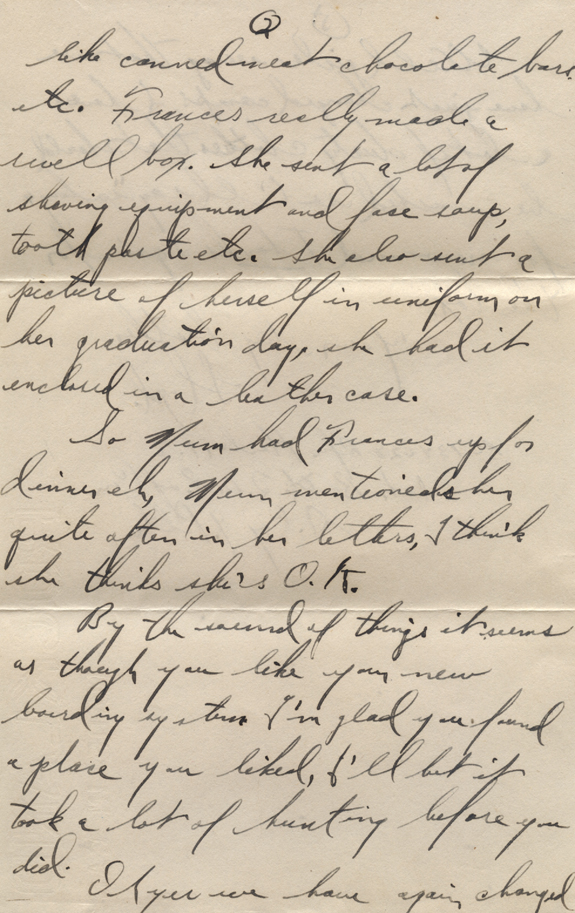 2
like canned meat chocolate bars
etc. Frances really made a
swell box. She sent a lot of
shaving equipment and face soap,
tooth paste etc. She also sent a
picture of herself in uniform on
her graduation day, she had it
enclosed in a leather case.
So Mum had Frances up for
dinner eh, Mum mentioneds her
quite often in her letters, I think
she thinks she's O.K.
By the sound of things it seems
as though you like your new
boarding system I'm glad you found
a place you liked, I'll bet it
took a lot of hunting before you
did.
Oh yes we have again changed